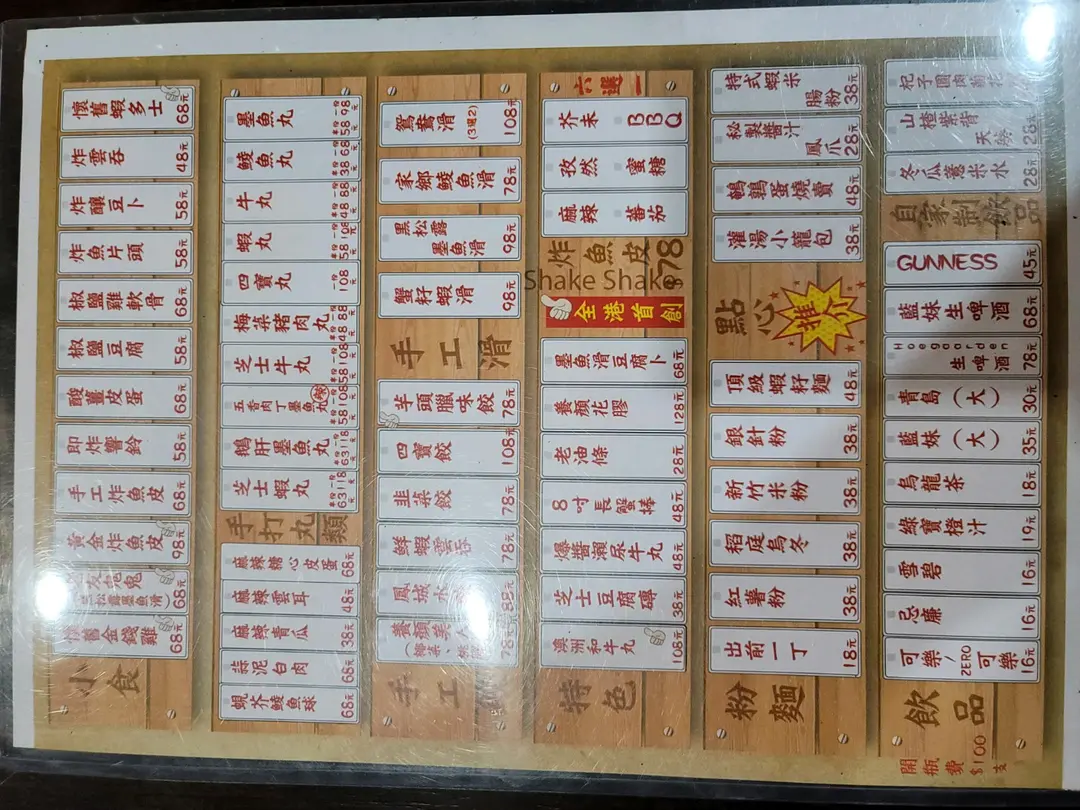 懷舊蝦多士 68元
炸雲吞 48元
炸釀豆卜 58元
炸魚片頭 58元
椒鹽雞軟骨 68元
椒鹽豆腐 58元
酸薑皮蛋 68元
即炸響鈴 58元
手工炸魚皮 68元
黃金炸魚皮 98元
68元
懷舊金錢雞 68元
小食
墨魚丸 半份58 一份98元
鯪魚丸 半份38 一份68元
牛丸 半份48 一份88元
蝦丸 半份58 一份108元
四寶丸 一份108
梅菜豬肉丸 半份48 一份88元
芝士牛丸 半份58 一份108元
五香肉丁墨魚丸 半份58 一份108元
鵝肝墨魚丸 半份63 一份118元
芝士蝦丸 半份63 一份118元
手打丸類
麻辣糖心皮蛋 68元
麻辣雲耳 48元
麻辣青瓜 38元
蒜泥白肉 68元
蜆芥鯪魚球 68元
鴛鴦滑 (3選2) 108元
家鄉鯪魚滑 78元
黑松露墨魚滑 98元
蟹籽蝦滑 98元
手工滑
芋頭臘味餃 78元
四寶餃 108元
韭菜餃 78元
鮮蝦雲吞 78元
鳳城水 88元
養顏美
手工
六選一
芥末 BBQ
孜然 蜜糖
麻辣 蕃茄
炸魚皮 $78
Shake Shake
全港首創
墨魚滑豆腐卜 68元
養顏花膠 128元
老油條 28元
8吋長蟹棒 48元
爆醬瀨尿牛丸 48元
芝士豆腐磚 38元
澳洲和牛丸 108元
特色
特式蝦米腸粉 38元
秘製醬汁鳳爪 28元
鵪鶉蛋燒賣 48元
灌湯小籠包 38元
點心 推
頂級蝦籽麵 48元
銀針粉 38元
新竹米粉 38元
稻庭烏冬 38元
紅薯粉 38元
出前一丁 18元
粉麵
杞子圓肉菊花 28元
山楂紫背天葵 28元
冬瓜薏米水 28元
自家制飲品
GUNNESS 45元
藍妹生啤酒 68元
Hoegaarden生啤酒 78元
青島(大) 30元
藍妹(大) 35元
烏龍茶 18元
綠寶橙汁 19元
雪碧 16元
忌廉 16元
可樂/ZERO可樂 16元
飲品
開瓶費$100支